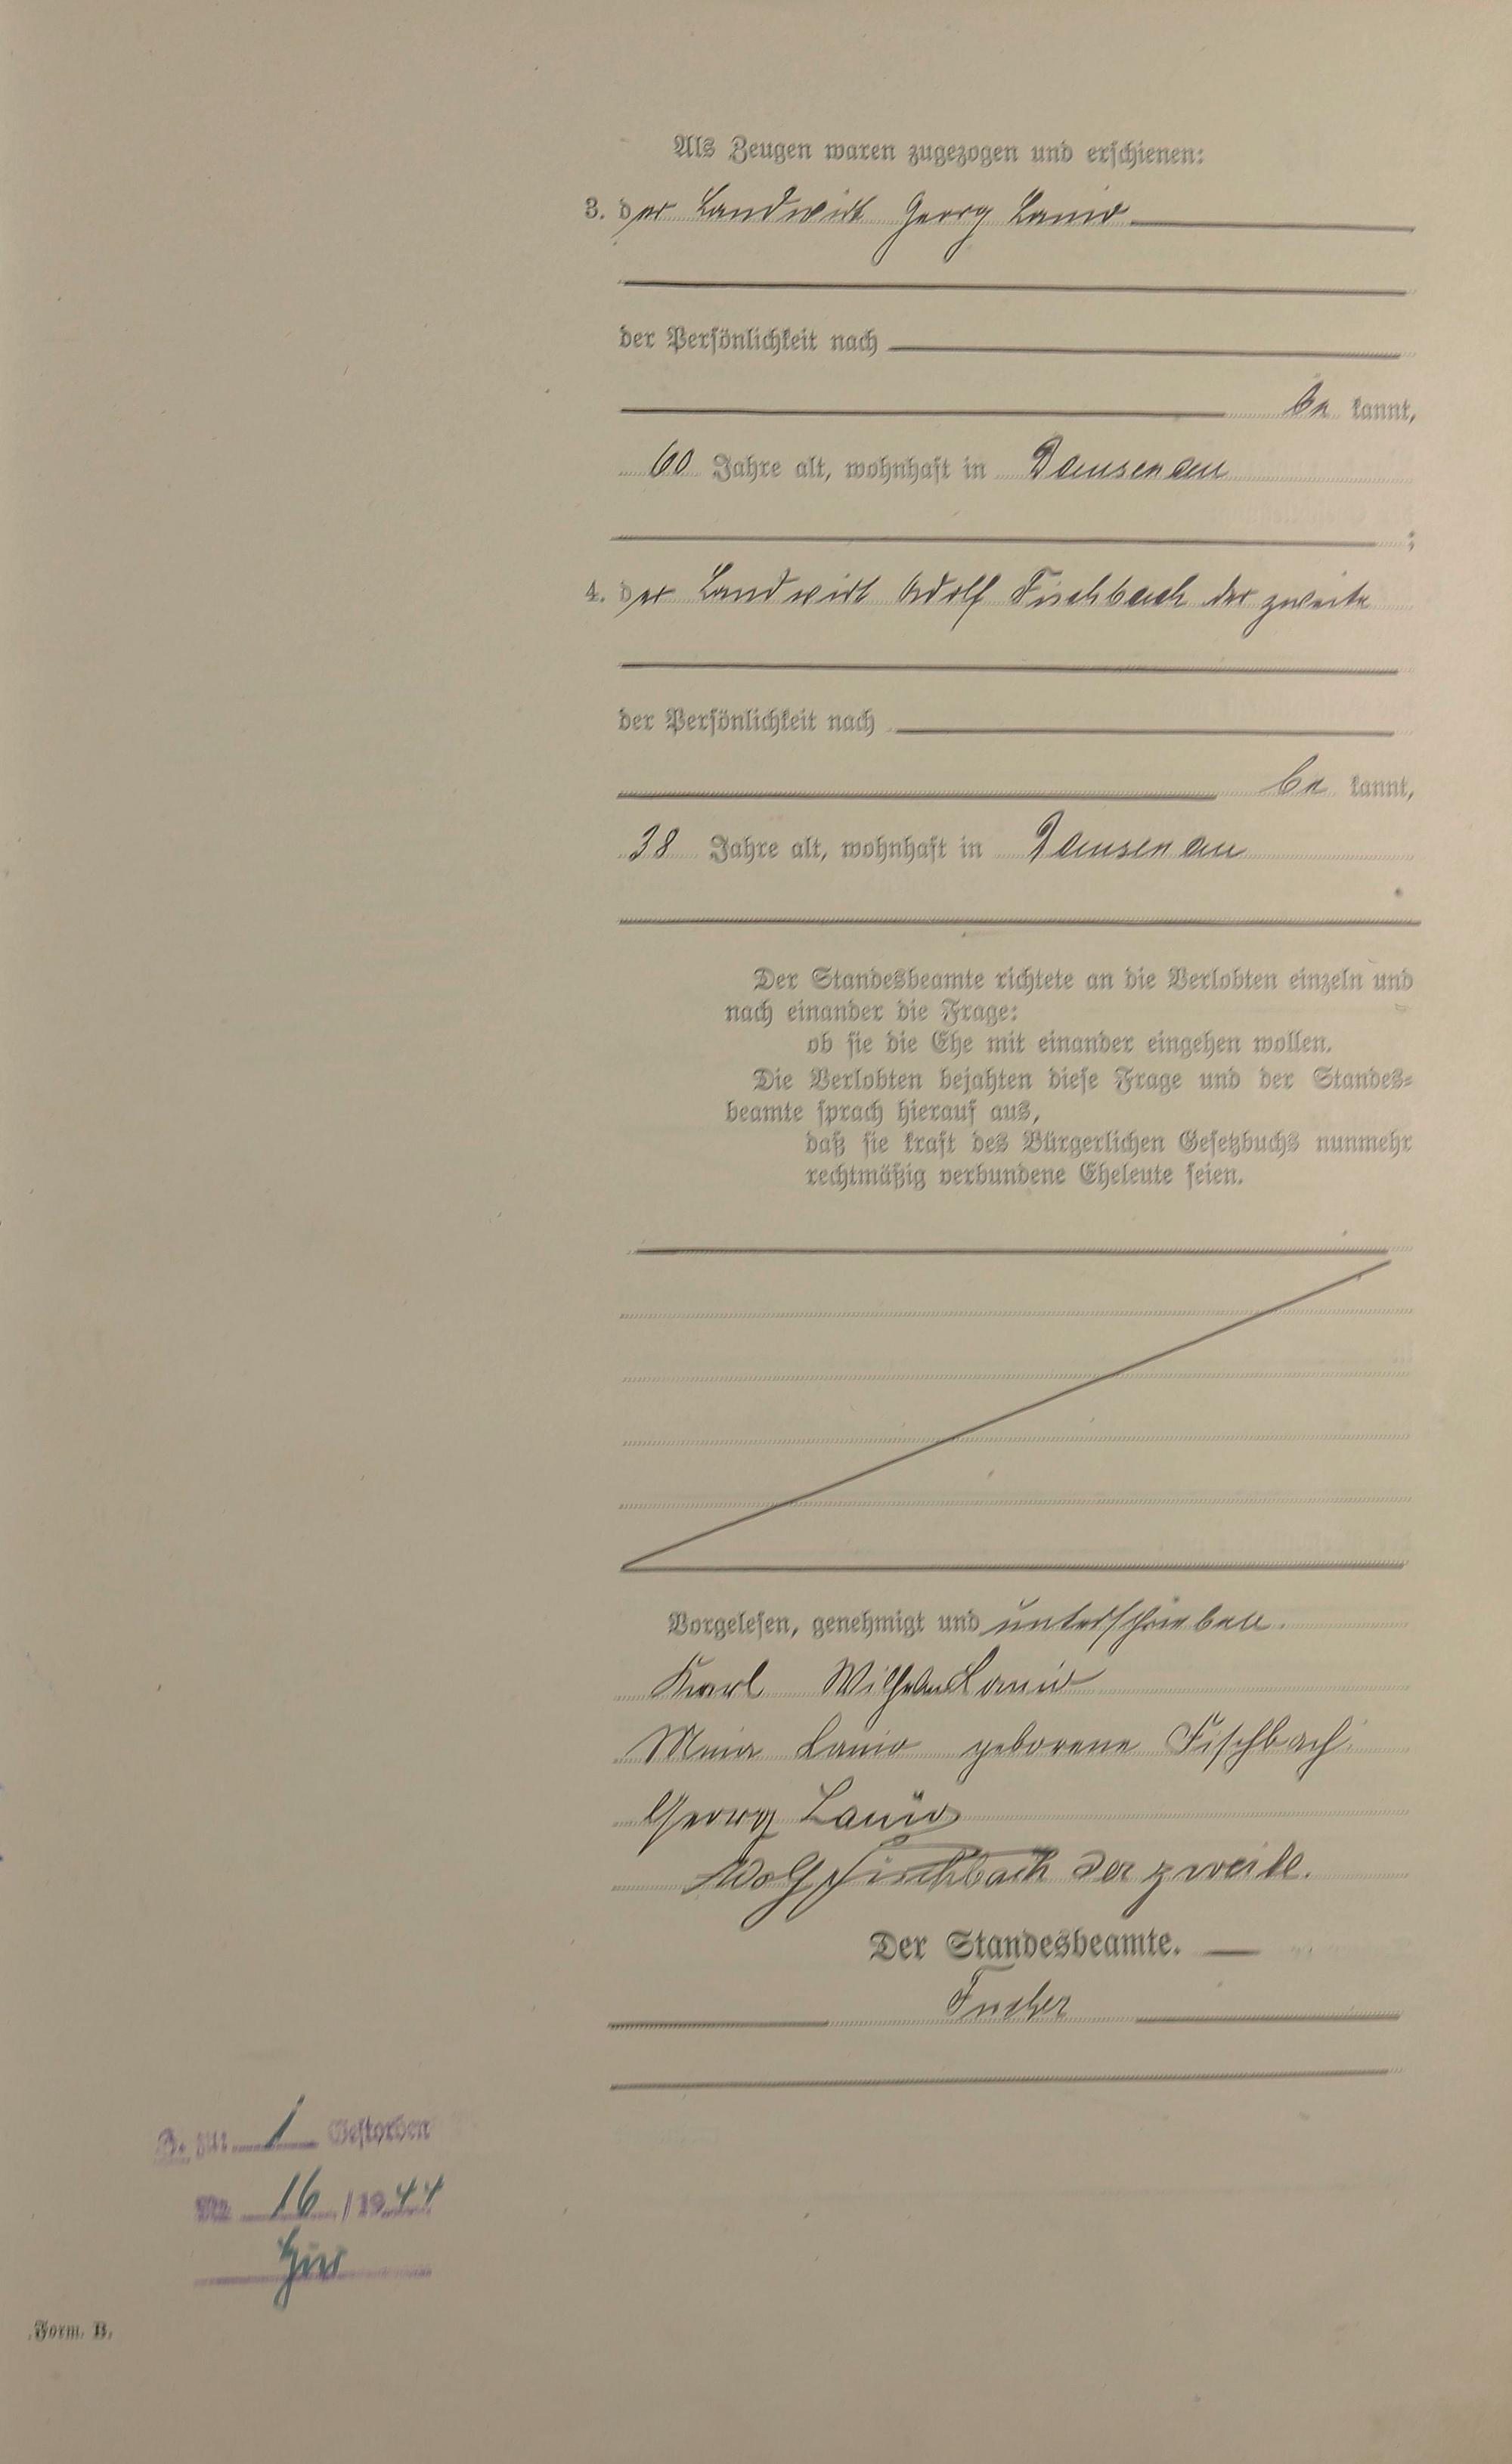 Als Zeugen waren zugezogen und erschienen:
3. der Landwirt Georg Lanio
der Persönlichkeit nach
be kannt,
60 Jahre alt, wohnhaft in Dausenau
;
4. der Landwirt Adolf Fischbach der zweite
der Persönlichkeit nach
be kannt,
38 Jahre alt, wohnhaft in Dausenau
.
Der Standesbeamte richtete an die Verlobten einzeln und
nach einander die Frage:
ob sie die Ehe mit einander eingehen wollen.
Die Verlobten bejahten diese Frage und der Standes-
beamte sprach hierauf aus,
daß sie kraft des Bürgerlichen Gesetzbuchs nunmehr
rechtmäßig verbundene Eheleute seien.
Vorgelesen, genehmigt und unterschrieben.
Karl Wilhelm Lanio
Lanio geborene Fischbach
Georg Lanio
Adolf Fischbach der zweite.
Der Standesbeamte.
1 Gestorben
16 / 1944
Form. B.